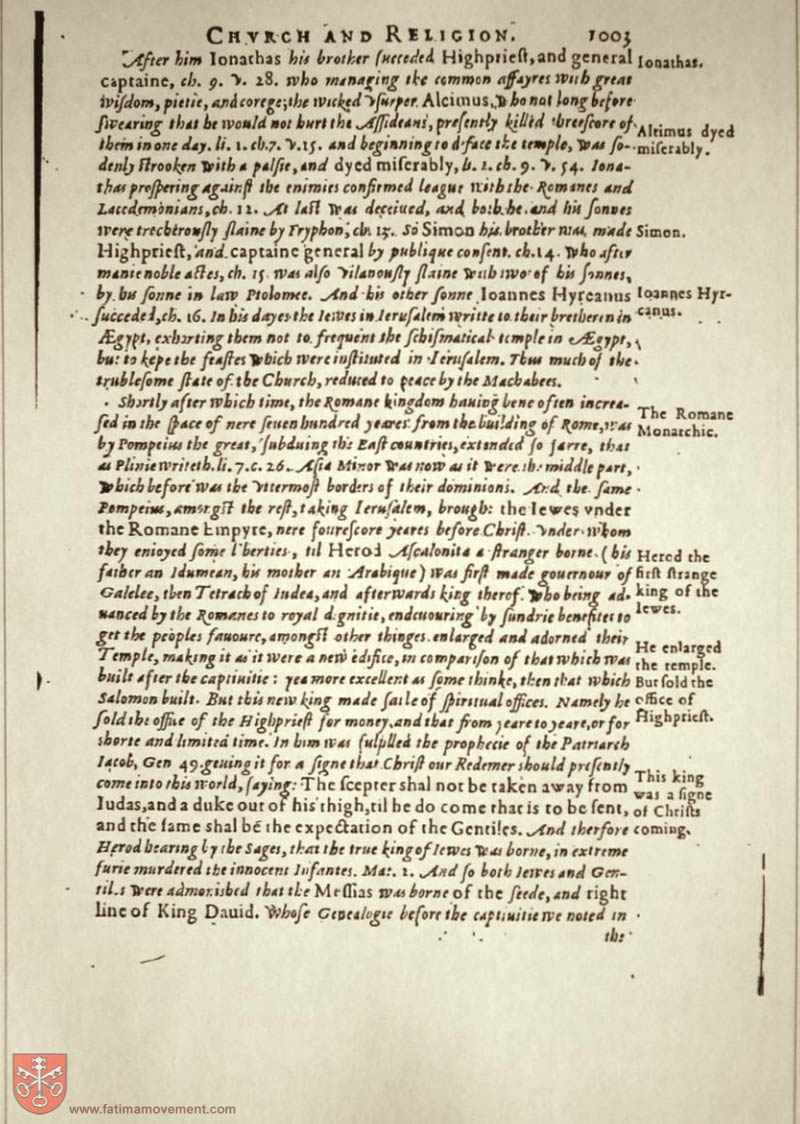 CHVRCH AND RELIGION. 1003
After him Ionathas his brother ſucceded Highprieſt, and general
captaine, ch. 9. v. 28. who managing the common affayres with great
wiſdom, pietie, and corege; the wicked vſurper Alcimus, who not long before
ſwearing that he would not hurt the Aſſideans, preſently killed threeſcore of
them in one day. li. 1. ch. 7. v. 15. and beginning to deface the temple, was ſo-
denly ſtrooken with a palſie, and dyed miſerably, li. 1. ch. 9. v. 54. Iona-
thas proſpering againſt the enimies confirmed league with the Romanes and
Lacedemonians, ch. 12. At laſt was deceiued, and both he and his ſonnes
were trecherouſly ſlaine by Tryphon, ch. 13. So Simon his brother was made
Highprieſt, and captaine general by publique conſent. ch. 14. Who after
manie noble actes, ch. 15 was alſo vilanouſly ſlaine with two of his ſonnes,
by his ſonne in law Ptolomee. And his other ſonne Ioannes Hyrcanus
ſucceded, ch. 16. In his dayes the Iewes in Ieruſalem writte to their bretheren in
Ægypt, exhorting them not to frequent the ſchiſmatical temple in Ægypt,
but to kepe the feaſtes which were inſtituted in Ieruſalem. Thus much of the
trubleſome ſtate of the Church, reduced to peace by the Machabees.
Shortly after which time, the Romane kingdom hauing bene often increa-
ſed in the ſpace of nere ſeuen hundred yeares from the building of Rome, was
by Pompeius the great, ſubduing the Eaſt countries, extended ſo farre, that
as Plinie writeth. li. 7. c. 26. Aſia Minor was now as it were the middle part,
which before was the vttermoſt borders of their dominions. And the ſame
Pompeius, amongſt the reſt, taking Ieruſalem, brought the Iewes vnder
the Romane Empyre, nere foureſcore yeares before Chriſt. Vnder whom
they enioyed ſome liberties, til Herod Aſcalonita a ſtranger borne (his
father an Idumean, his mother an Arabique) was firſt made gouernour of
Galelee, then Tetrach of Iudea, and afterwards king therof. Who being ad-
uanced by the Romanes to royal dignitie, endeuouring by ſundrie benefites to
get the peoples fauoure, amongſt other thinges enlarged and adorned their
Temple, making it as it were a new edifice, in compariſon of that which was
built after the captiuitie: yea more excellent as ſome thinke, then that which
Salomon built. But this new king made ſaile of ſpiritual offices. Namely he
ſold the office of the Highprieſt for money, and that from yeare to yeare, or for
ſhorte and limited time. In him was fulfilled the prophecie of the Patriarch
Iacob, Gen 49. geuing it for a ſigne that Chriſt our Redemer ſhould preſently
come into this world, ſaying: The ſcepter shal not be taken away from
Iudas, and a duke out of his thigh, til he do come that is to be ſent,
and the ſame shal be the expectation of the Gentiles. And therfore
Herod hearing by the Sages, that the true king of Iewes was borne, in extreme
furie murdered the innocent Infantes. Mat. 2. And ſo both Iewes and Gen-
tiles were admonished that the Meſſias was borne of the ſeede, and right
line of King Dauid. Whoſe Genealogie before the captiuitie we noted in
the
Ionathas.
Alcimus dyed
miſerably.
Simon.
Ioannes Hyr-
canus.
The Romane
Monarchie.
Herod the
firſt ſtrange
king of the
Iewes.
He enlarged
the temple.
But ſold the
office of
Highprieſt.
This king
was a ſigne
of Chriſts
coming.
www.fatimamovement.com